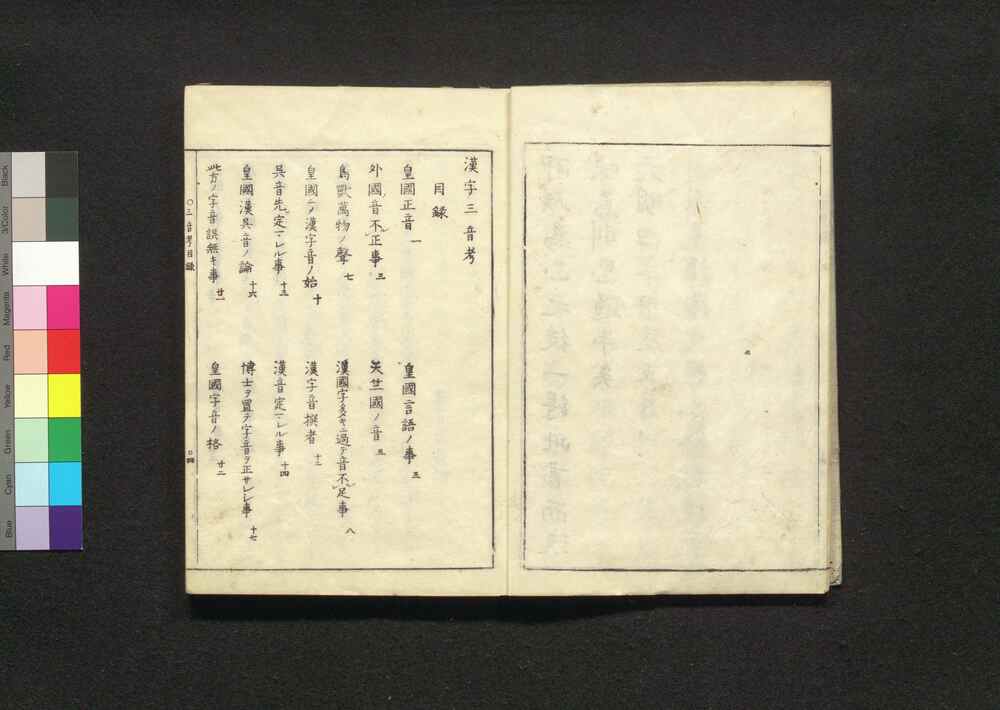 漢字三音考
目録
皇國正音 一
皇國言語ノ事 三
外國ノ音不正事 三
天竺國ノ音 五
鳥獸萬物ノ聲 七
漢國字多キニ過テ音不足事 八
皇國ニテ漢字音ノ始 十
漢字音撰者 十二
吳音先定マレル事 十三
漢音定マレル事 十四
皇國漢吳音ノ論 十六
博士ヲ置テ字音ヲ正サレシ事 十七
此方ノ字音誤無キ事 廿一
皇國字音ノ格 廿二
〇三音考目錄
Black
3/Color
White
Magenta
Red
Yellow
Green
Cyan
Blue